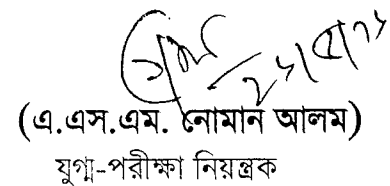 ২১/৫/২১
(এ.এস.এম. নোমান আলম)
যুগ্ম-পরীক্ষা নিয়ন্ত্রক